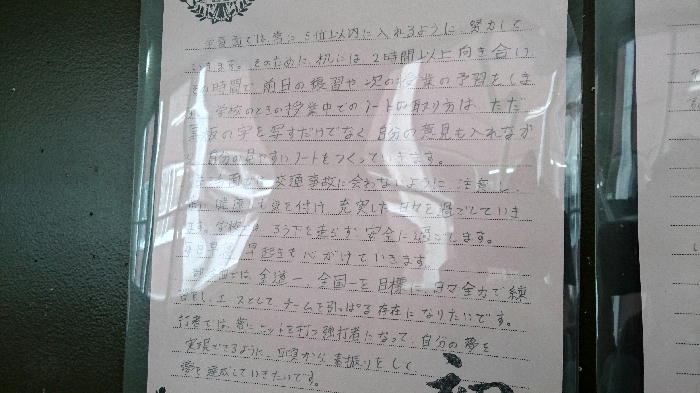 学習面では、常に5位以内に入れるように努力して
いきます。そのために、机には2時間以上向き合い
その時間で、前日の復習や次の授業の予習をしま
す。学校のときの授業中でのノートの取り方は、ただ
黒板の字を写すだけでなく、自分の意見も入れなが
ら、自分が見やすいノートをつくっていきます。
生活面では、交通事故に会わないように注意し、
健康にも気を付け、充実した日々を過ごしていき
ます。学校では、ろう下を走らず、安全に過ごします。
毎日早寝、早起きも心がけていきます。
では、全道一、全国一を目標に、日々全力で練
習をし、エースとしてチームを引っぱる存在になりたいです。
打者では、常にヒットを打つ強打者になって、自分の夢を
実現できるように、日頃から素振りをして
夢を達成していきたいです。